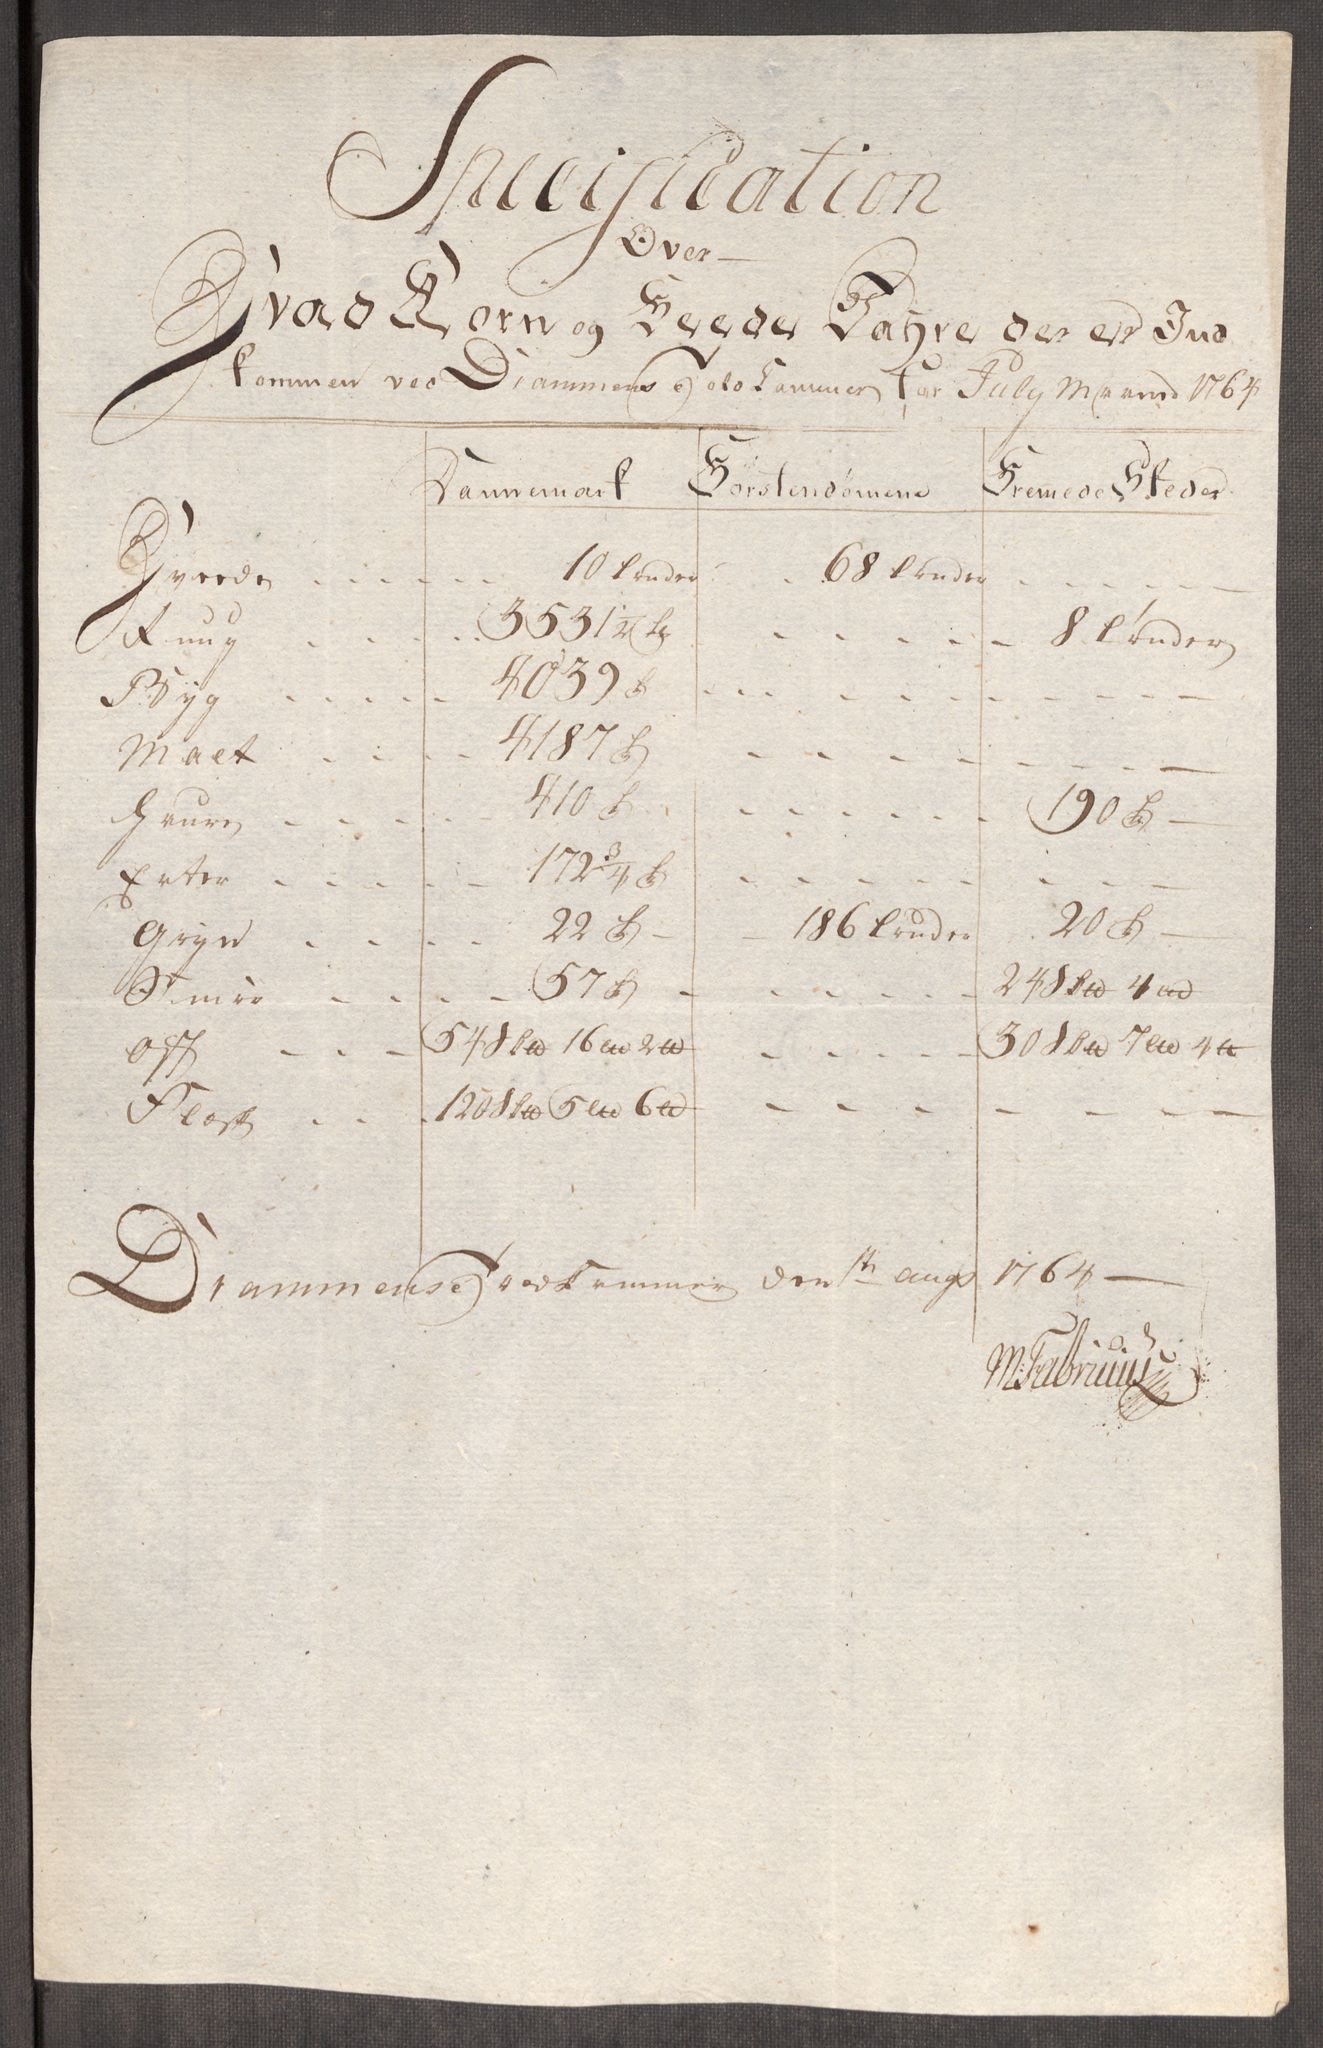 Specification
Over
Hvad Korn og Feede Vahre der er Ind
kommen ved Drammens Told Kammer for July Maaned 1764
Dannemark Förstendömene Fremede Steder
Hvede 10 tönder 68 tönder
Rug 3531 1/2 t 8 tönder
Byg 4039 t
Malt 4187 t
Haure 410 t 190 t
Erter 172 3/4 t
Gryn 22 t 186 tönder 20 t
Smör 57 t 24 8 4
Ost 54 16 2 30 7 4
Flesk 120 5 6
Drammens Toldkammer den 1te augs 1764
M Fabricius